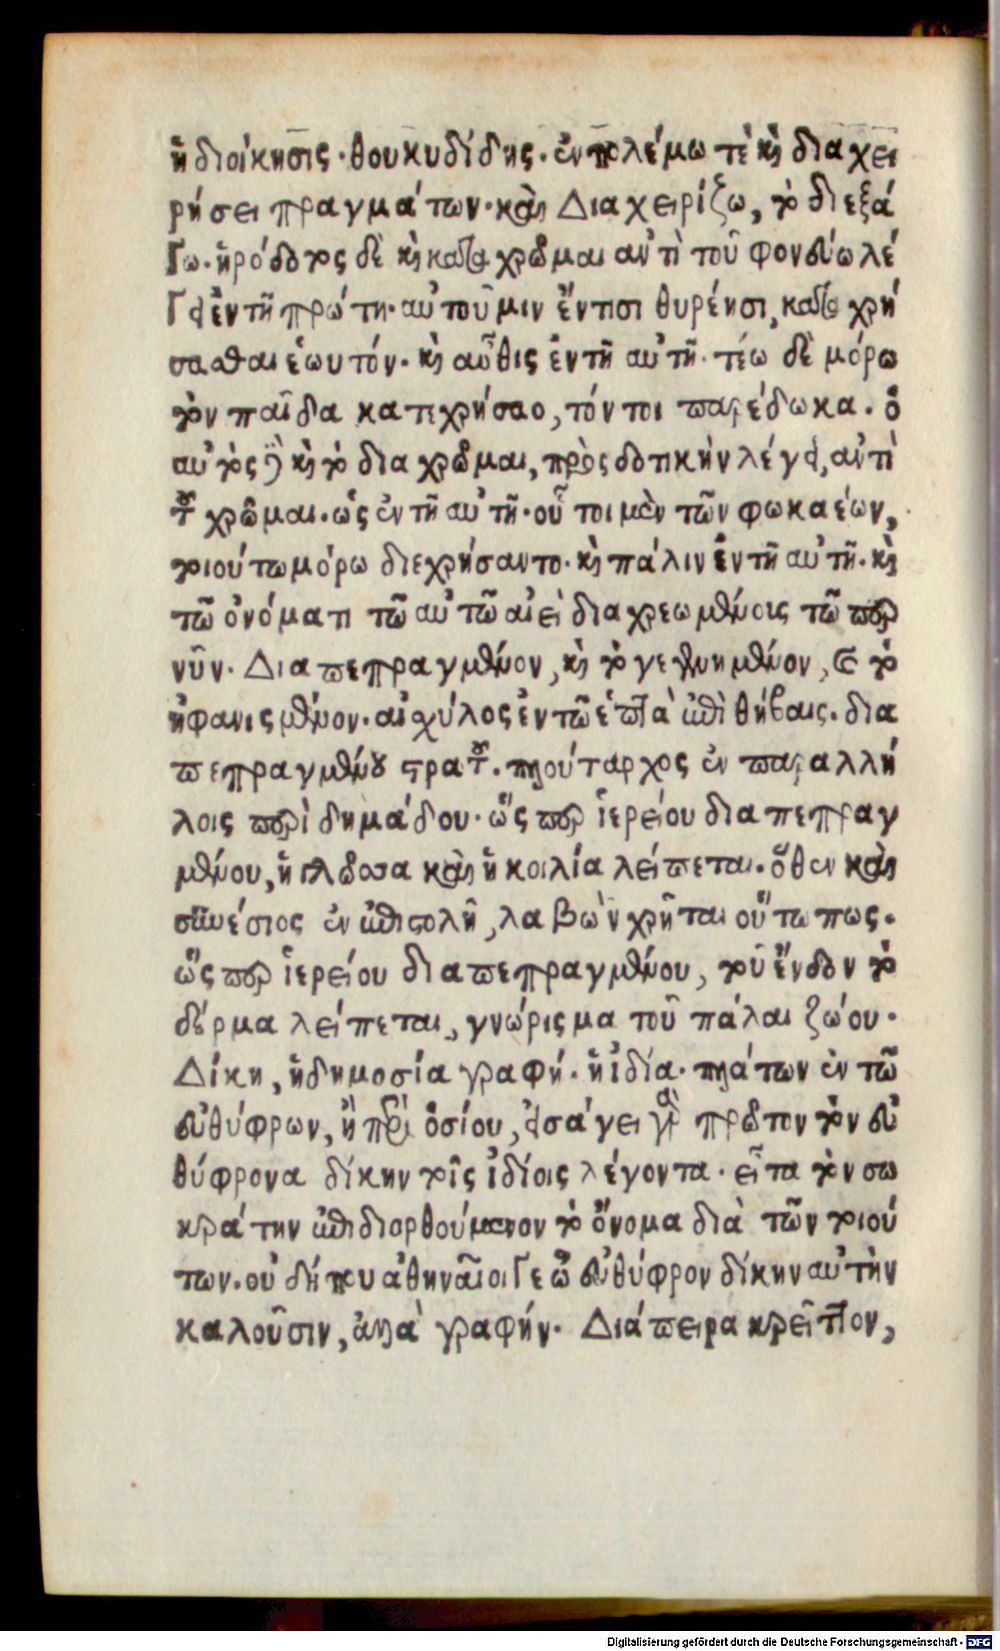 ἡ διοίκησις. θουκυδίδης. ἐν πολέμω τὲ καὶ διαχει
ρήσει πραγμάτων. καὶ Διαχειρίζω, τὸ διεξά
γω. ἡρόδοτος δὲ καὶ καταχρῶμαι αντὶ τοῦ φονεύω λέ
γει ἐν τῆ πρώτη. αὐτοῦ μιν ἔντισι θυρένσι, καταχρή
σασθαι ἑωυτόν. καὶ αὖθις ἐν τῆ αὐτῆ. τέω δὲ μόρω
τὸν παῖδα κατεχρήσαο, τόν τοι παρέδωκα. ὁ
αὐτὸς δὲ καὶ τὸ διαχρῶμαι, πρὸς δοτικὴν λέγει, αντὶ
τοῦ χρῶμαι. ὡς ἐν τῆ αὐτῆ. οὗτοι μὲν τῶν φωκαέων,
τοιούτω μόρω διεχρήσαντο. καὶ πάλιν ἐν τῆ αὐτῆ. καὶ
τῶ ὀνόματι τῶ αὐτῶ αἰεὶ διαχρεωμένοις τῶ περ
νῦν. Διαπεπραγμένον, καὶ τὸ γεγενημένον, καὶ τὸ
ἠφανισμένον. αἰχύλος ἐν τῶ ἑπτὰ ἐπὶ θήβαις. δια
πεπραγμένου στρατοῦ. πλούταρχος ἐν παραλλή
λοις περὶ δημάδου. ὥσπερ ἱερείου διαπεπραγ
μένου, ἡ γλῶσσα καὶ ἡ κοιλία λείπεται. ὅθεν καὶ
συνέσιος ἐν ἐπιστολῆ, λαβὼν χρῆται οὕτω πως.
ὥσπερ ἱερείου διαπεπραγμένου, τοῦ ἔνδον τὸ
δέρμα λείπεται, γνώρισμα τοῦ πάλαι ζώου.
Δίκη, ἡ δημοσία γραφή. ἢ ἰδία. πλάτων ἐν τῶ
εὐθύφρων, ἢ περὶ ὁσίου, εἰσάγει γὰρ πρῶτον τὸν εὐ
θύφρονα δίκην τοῖς ἰδίοις λέγοντα. εἶτα τὸν σω
κράτην ἐπιδιορθούμενον τὸ ὄνομα διὰ τῶν τοιού
των. οὐ δήπου ἀθηναῖοι γε ὦ εὐθύφρον δίκην αὐτὴν
καλοῦσιν, ἀλλὰ γραφήν. Διάπειρα κρεῖττον,
Digitalisierung gefördert durch die Deutsche Forschungsgemeinschaft - DFG